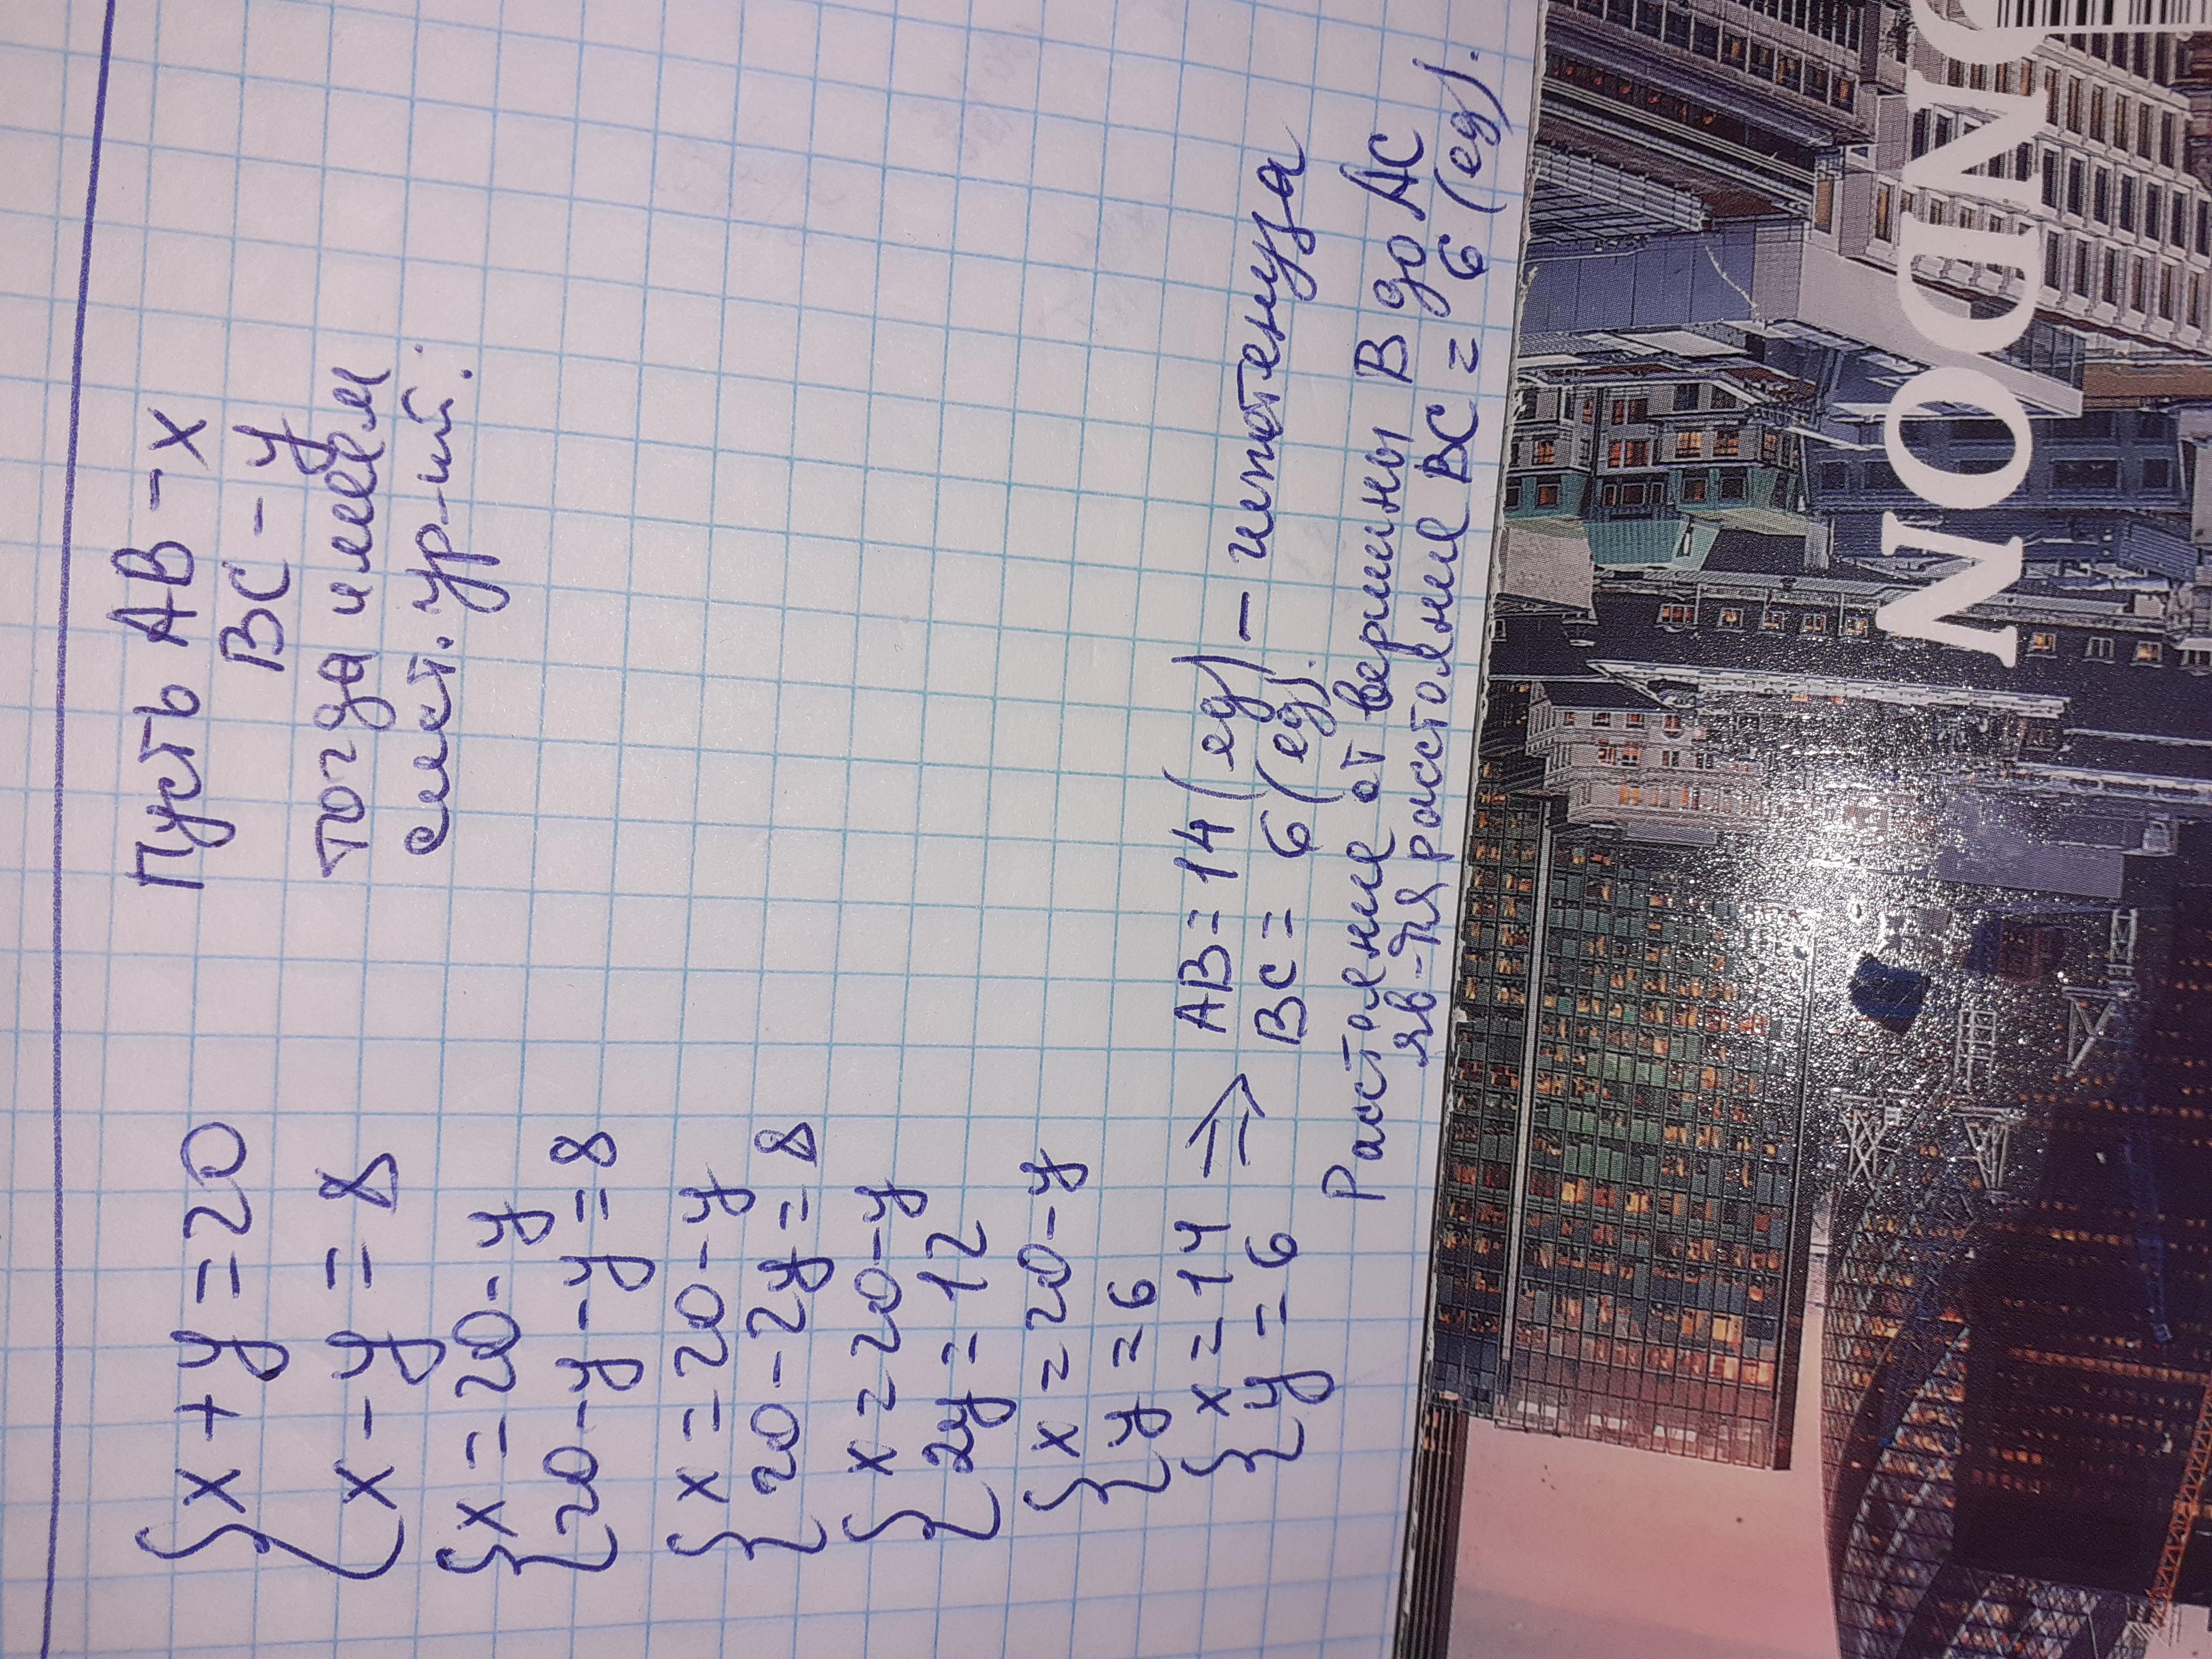 {x + y = 20
x - y = 8
Пусть AB - x
BC - y
тогда имеем
сист. ур-ий:
{x = 20 - y
20 - y - y = 8
{x = 20 - y
20 - 2y = 8
{x = 20 - y
2y = 12
{x = 20 - y
y = 6
{x = 14
y = 6
=> AB = 14 (ед) - гипотенуза
BC = 6 (ед).
Расстояние от вершины B до AC
яв-ля расстояние BC = 6 (ед).
LONDON